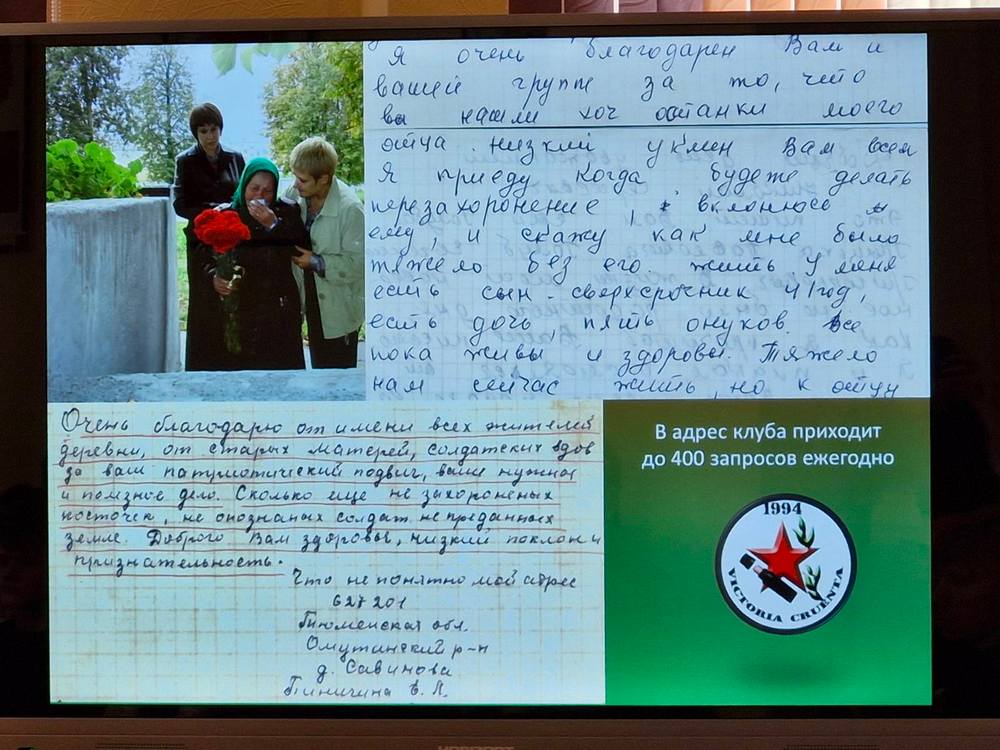 Я очень благодарен Вам и
вашей группе за то, что
вы нашли хоч останки моего
отца низкий уклин Вам всем
Я приеду когда будеже делать
перезахоронение,
ему и скажу как мне было
тяжело без его жить У меня
есть сын - сверхсрочник 41 год,
есть дочь, пять онуков. Все
пока живы и здоровы. Тяжело
нам сейчас жить, но к отцу
Очень благодарю от имени всех жителей
деревни, от старых матерей, солдатских вдов
за ваш патриотический подвиг, ваше нужное
и полезное дело. Сколько еще не захороненых
косточек, не опознаных солдат не преданных
земле. Доброго Вам здоровья, низкий поклон и
признательность.
Что не понятно мой адрес
627201
Тюменская обл.
Омутинский р-н
д. Савинова
В адрес клуба приходит
до 400 запросов ежегодно
1994
VICTORIA CRUENTA